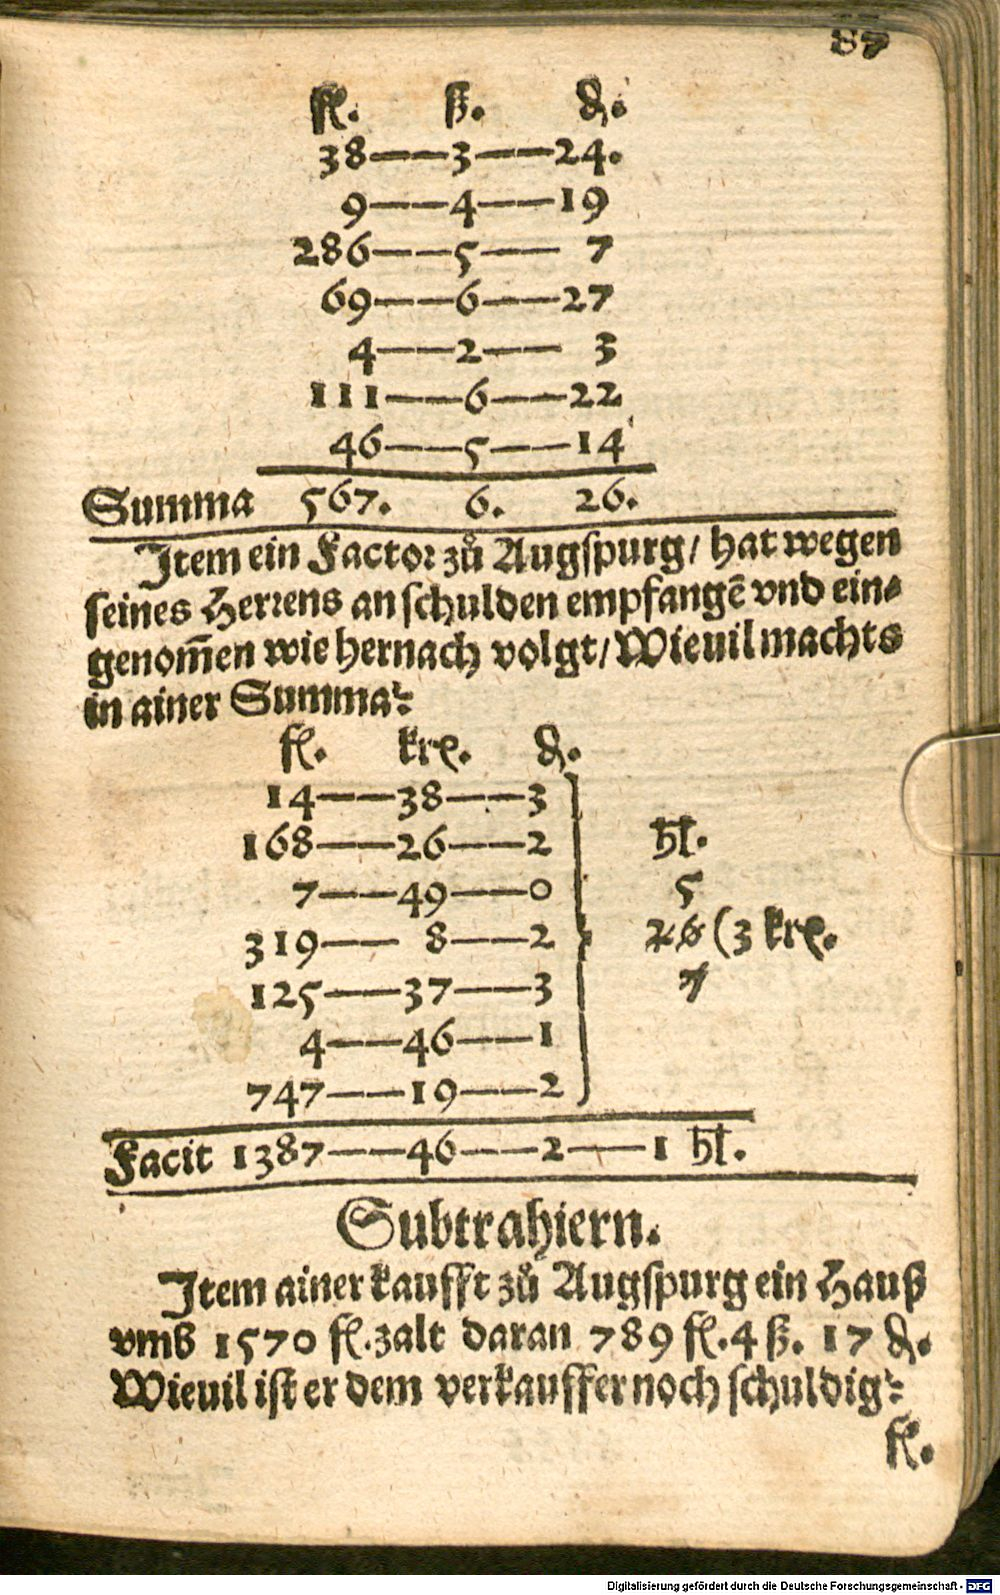 87
fl. ß. ₰.
38——3——24.
9——4——19
286——5—— 7
69——6——27
4——2—— 3
111——6——22
46——5——14
Summa 567. 6. 26.
Item ein Factor zů Augſpurg/ hat wegen
ſeines Herrens an ſchulden empfangẽ vnd ein⸗
genom̃en wie hernach volgt/ Wieuil machts
in ainer Summa?
fl. krx. ₰.
14——38——3
168——26——2
7——49——0
319—— 8——2
125——37——3
4——46——1
747——19——2
hl.
5
26 (3 krx.
7
Facit 1387——46——2——1 hl.
Subtrahiern.
Item ainer kaufft zů Augſpurg ein Hauß
vmb 1570 fl. zalt daran 789 fl. 4 ß. 17 ₰.
Wieuil iſt er dem verkauffer noch ſchuldig?
fl.
Digitalisierung gefördert durch die Deutsche Forschungsgemeinschaft - DFG